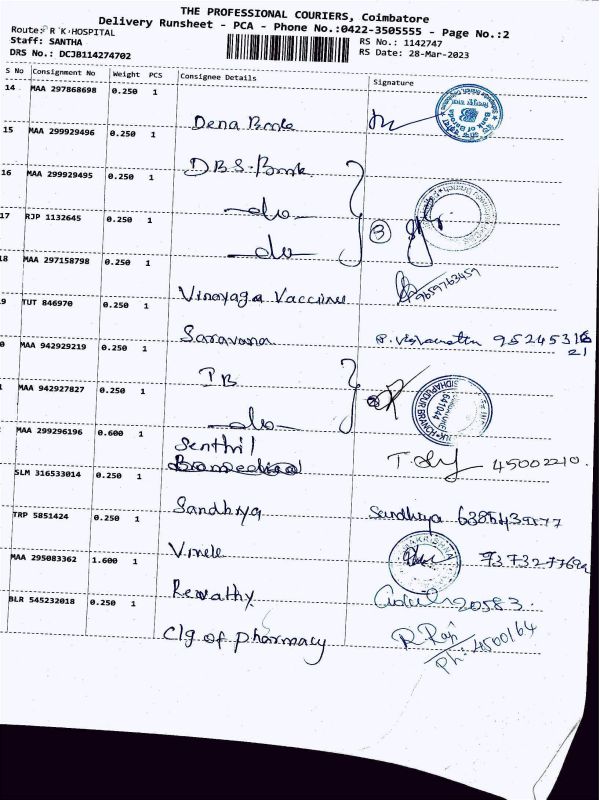 THE PROFESSIONAL COURIERS, Coimbatore
Delivery Runsheet - PCA - Phone No.:0422-3505555 - Page No.:2
Route: R K HOSPITAL
RS No.: 1142747
Staff: SANTHA
RS Date: 28-Mar-2023
DRS No.: DCJB114274702
S No Consignment No Weight PCS Consignee Details Signature
14 MAA 297868698 0.250 1
Dena Bank
15 MAA 299929496 0.250 1
DBS Bank
16 MAA 299929495 0.250 1
-do-
17 RJP 1132645 0.250 1
-do- 3
18 MAA 297158798 0.250 1
Vinayaga Vaccines 9659763459
9 TUT 846970 0.250 1
Saravana 9524531621
0 MAA 942929219 0.250 1
IB
MAA 942927827 0.250 1
-do-
MAA 299296196 0.600 1
Senthil
45002210.
SLM 316533014 0.250 1
Sandhya Sandhya
TRP 5851424 0.250 1
MAA 295083362 1.600 1
Revathy 20583
BLR 545232018 0.250 1
Clg of pharmacy R. Raji
Ph: 4500164